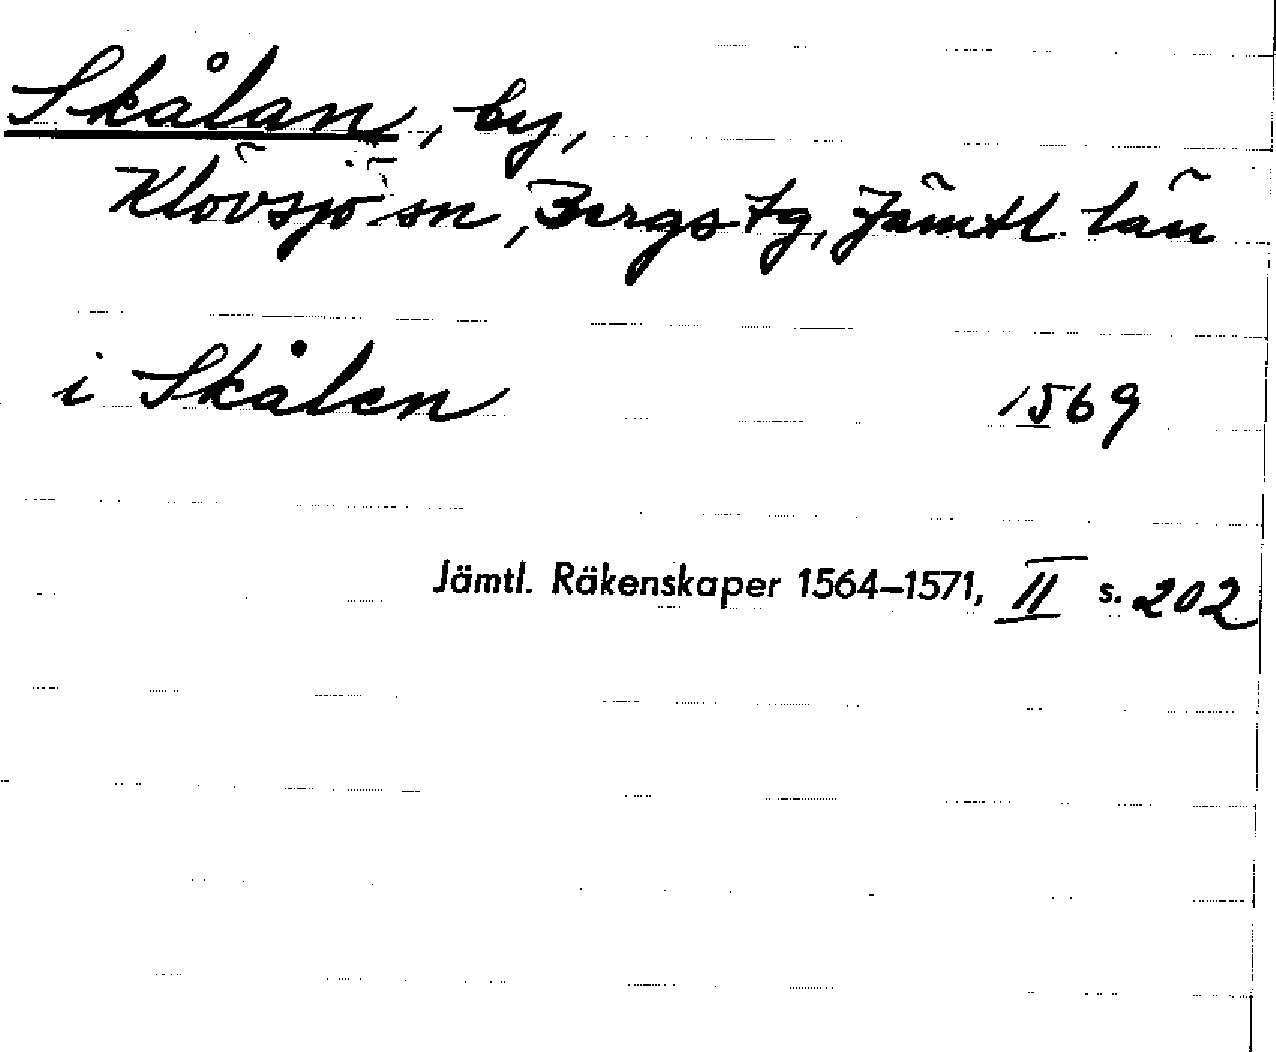 Skålan, by,
Klövsjö sn, Bergs tg, Jämtl. län
i Skålen 1569
Jämtl. Räkenskaper 1564–1571, II s. 202